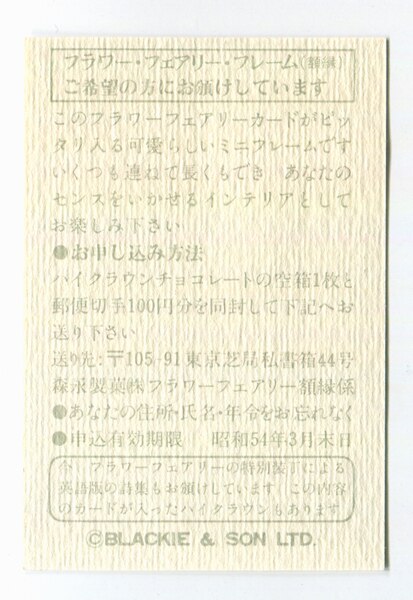 フラワー・フェアリー・フレーム(額縁)
ご希望の方にお頒けしています
このフラワーフェアリーカードがピッ
タリ入る可愛らしいミニフレームです
いくつも連ねて長くもでき あなたの
センスをいかせるインテリアとして
お楽しみ下さい
●お申し込み方法
ハイクラウンチョコレートの空箱1枚と
郵便切手100円分を同封して下記へお
送り下さい
送り先:〒105-91東京芝局私書箱44号
森永製菓㈱フラワーフェアリー額縁係
●あなたの住所・氏名・年令をお忘れなく
●申込有効期限 昭和54年3月末日
今、フラワーフェアリーの特別装丁による
英語版の詩集もお頒けしています この内容
のカードが入ったハイクラウンもあります
©BLACKIE & SON LTD.